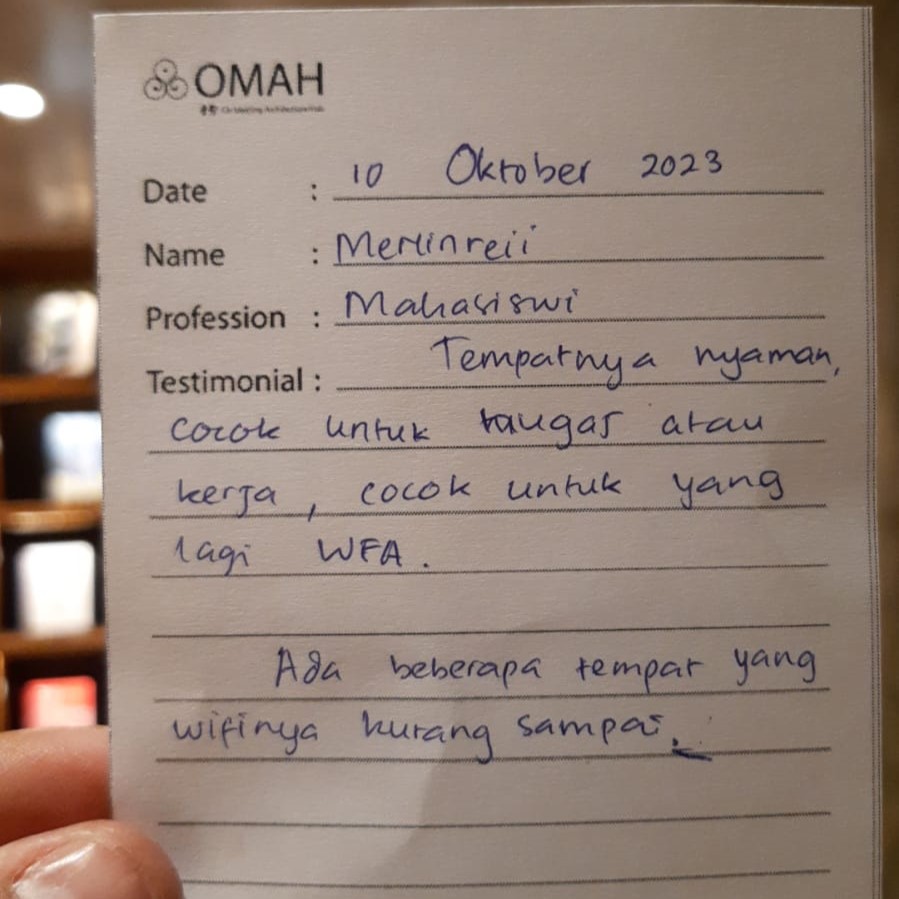 OMAH
Date : 10 Oktober 2023
Name : Merlinreii
Profession : Mahasiswi
Testimonial : Tempatnya nyaman,
cocok untuk naugas atau
kerja, cocok untuk yang
lagi WFA.
Ada beberapa tempat yang
wifinya kurang sampai.